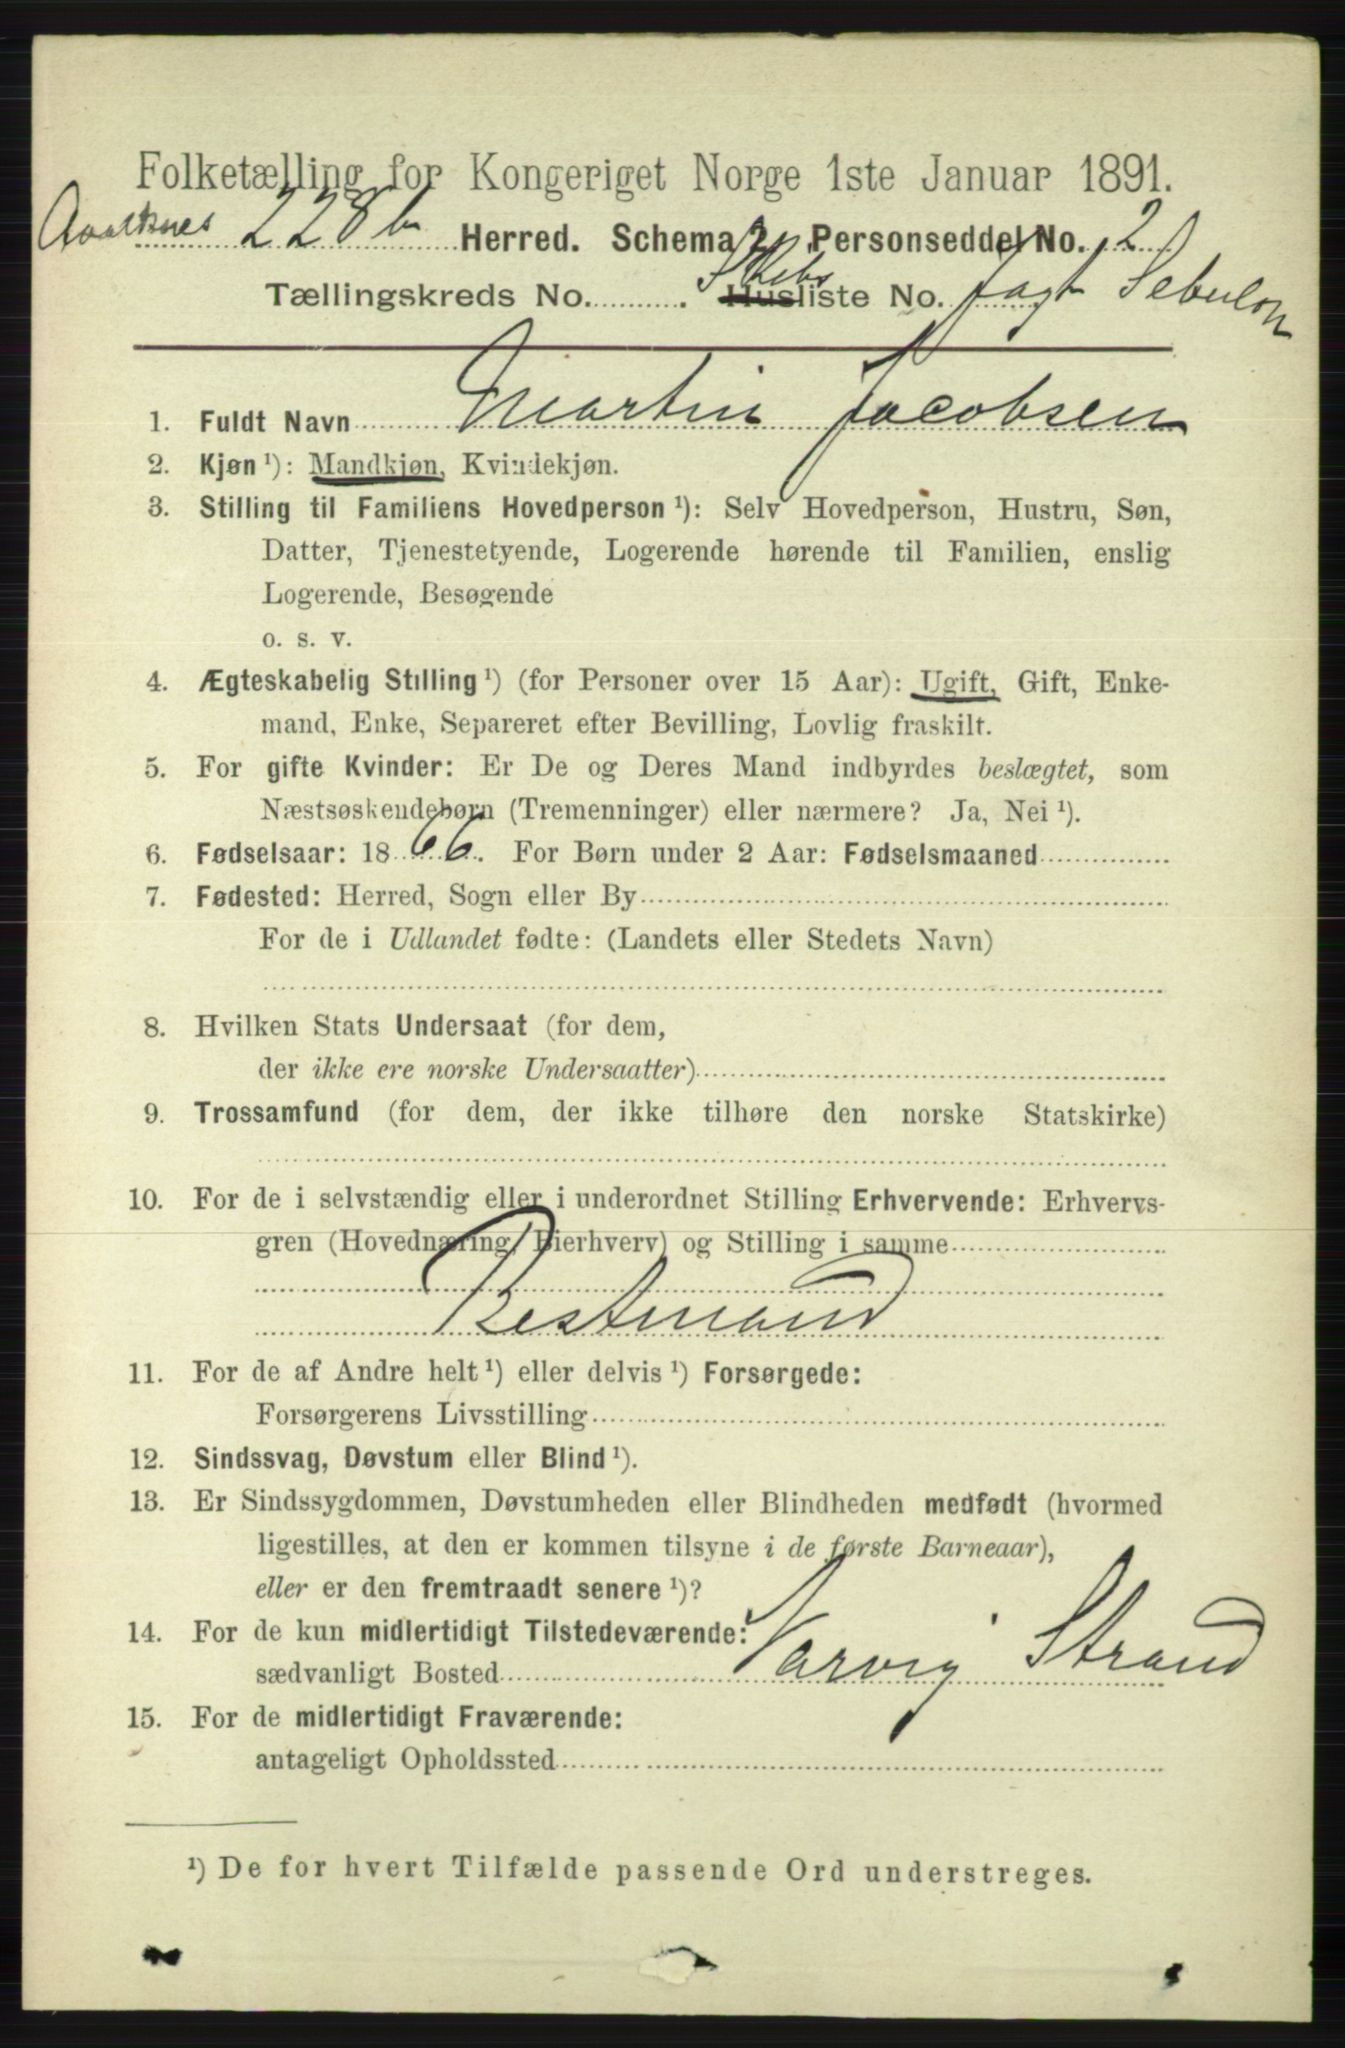 Folketælling for Kongeriget Norge 1ste Januar 1891.
228b Herred. Schema 2. Personseddel No. 2
Tællingskreds No. . Skibsliste No. Jagt Sebulon
1. Fuldt Navn Martin Jacobsen
2. Kjøn ¹): Mandkjøn, Kvindekjøn.
3. Stilling til Familiens Hovedperson ¹): Selv Hovedperson, Hustru, Søn,
Datter, Tjenestetyende, Logerende hørende til Familien, enslig
Logerende, Besøgende
o. s. v.
4. Ægteskabelig Stilling ¹) (for Personer over 15 Aar): Ugift, Gift, Enke-
mand, Enke, Separeret efter Bevilling, Lovlig fraskilt.
5. For gifte Kvinder: Er De og Deres Mand indbyrdes beslægtet, som
Næstsøskendebørn (Tremenninger) eller nærmere? Ja, Nei ¹).
6. Fødselsaar: 1866. For Børn under 2 Aar: Fødselsmaaned
7. Fødested: Herred, Sogn eller By
For de i Udlandet fødte: (Landets eller Stedets Navn)
8. Hvilken Stats Undersaat (for dem,
der ikke ere norske Undersaatter)
9. Trossamfund (for dem, der ikke tilhøre den norske Statskirke)
10. For de i selvstændig eller i underordnet Stilling Erhvervende: Erhvervs-
gren (Hovednæring, Bierhverv) og Stilling i samme
Bestmand
11. For de af Andre helt ¹) eller delvis ¹) Forsørgede:
Forsørgerens Livsstilling
12. Sindssvag, Døvstum eller Blind ¹).
13. Er Sindssygdommen, Døvstumheden eller Blindheden medfødt (hvormed
ligestilles, at den er kommen tilsyne i de første Barneaar),
eller er den fremtraadt senere ¹)?
14. For de kun midlertidigt Tilstedeværende:
sædvanligt Bosted Narvig Strand
15. For de midlertidigt Fraværende:
antageligt Opholdssted
¹) De for hvert Tilfælde passende Ord understreges.